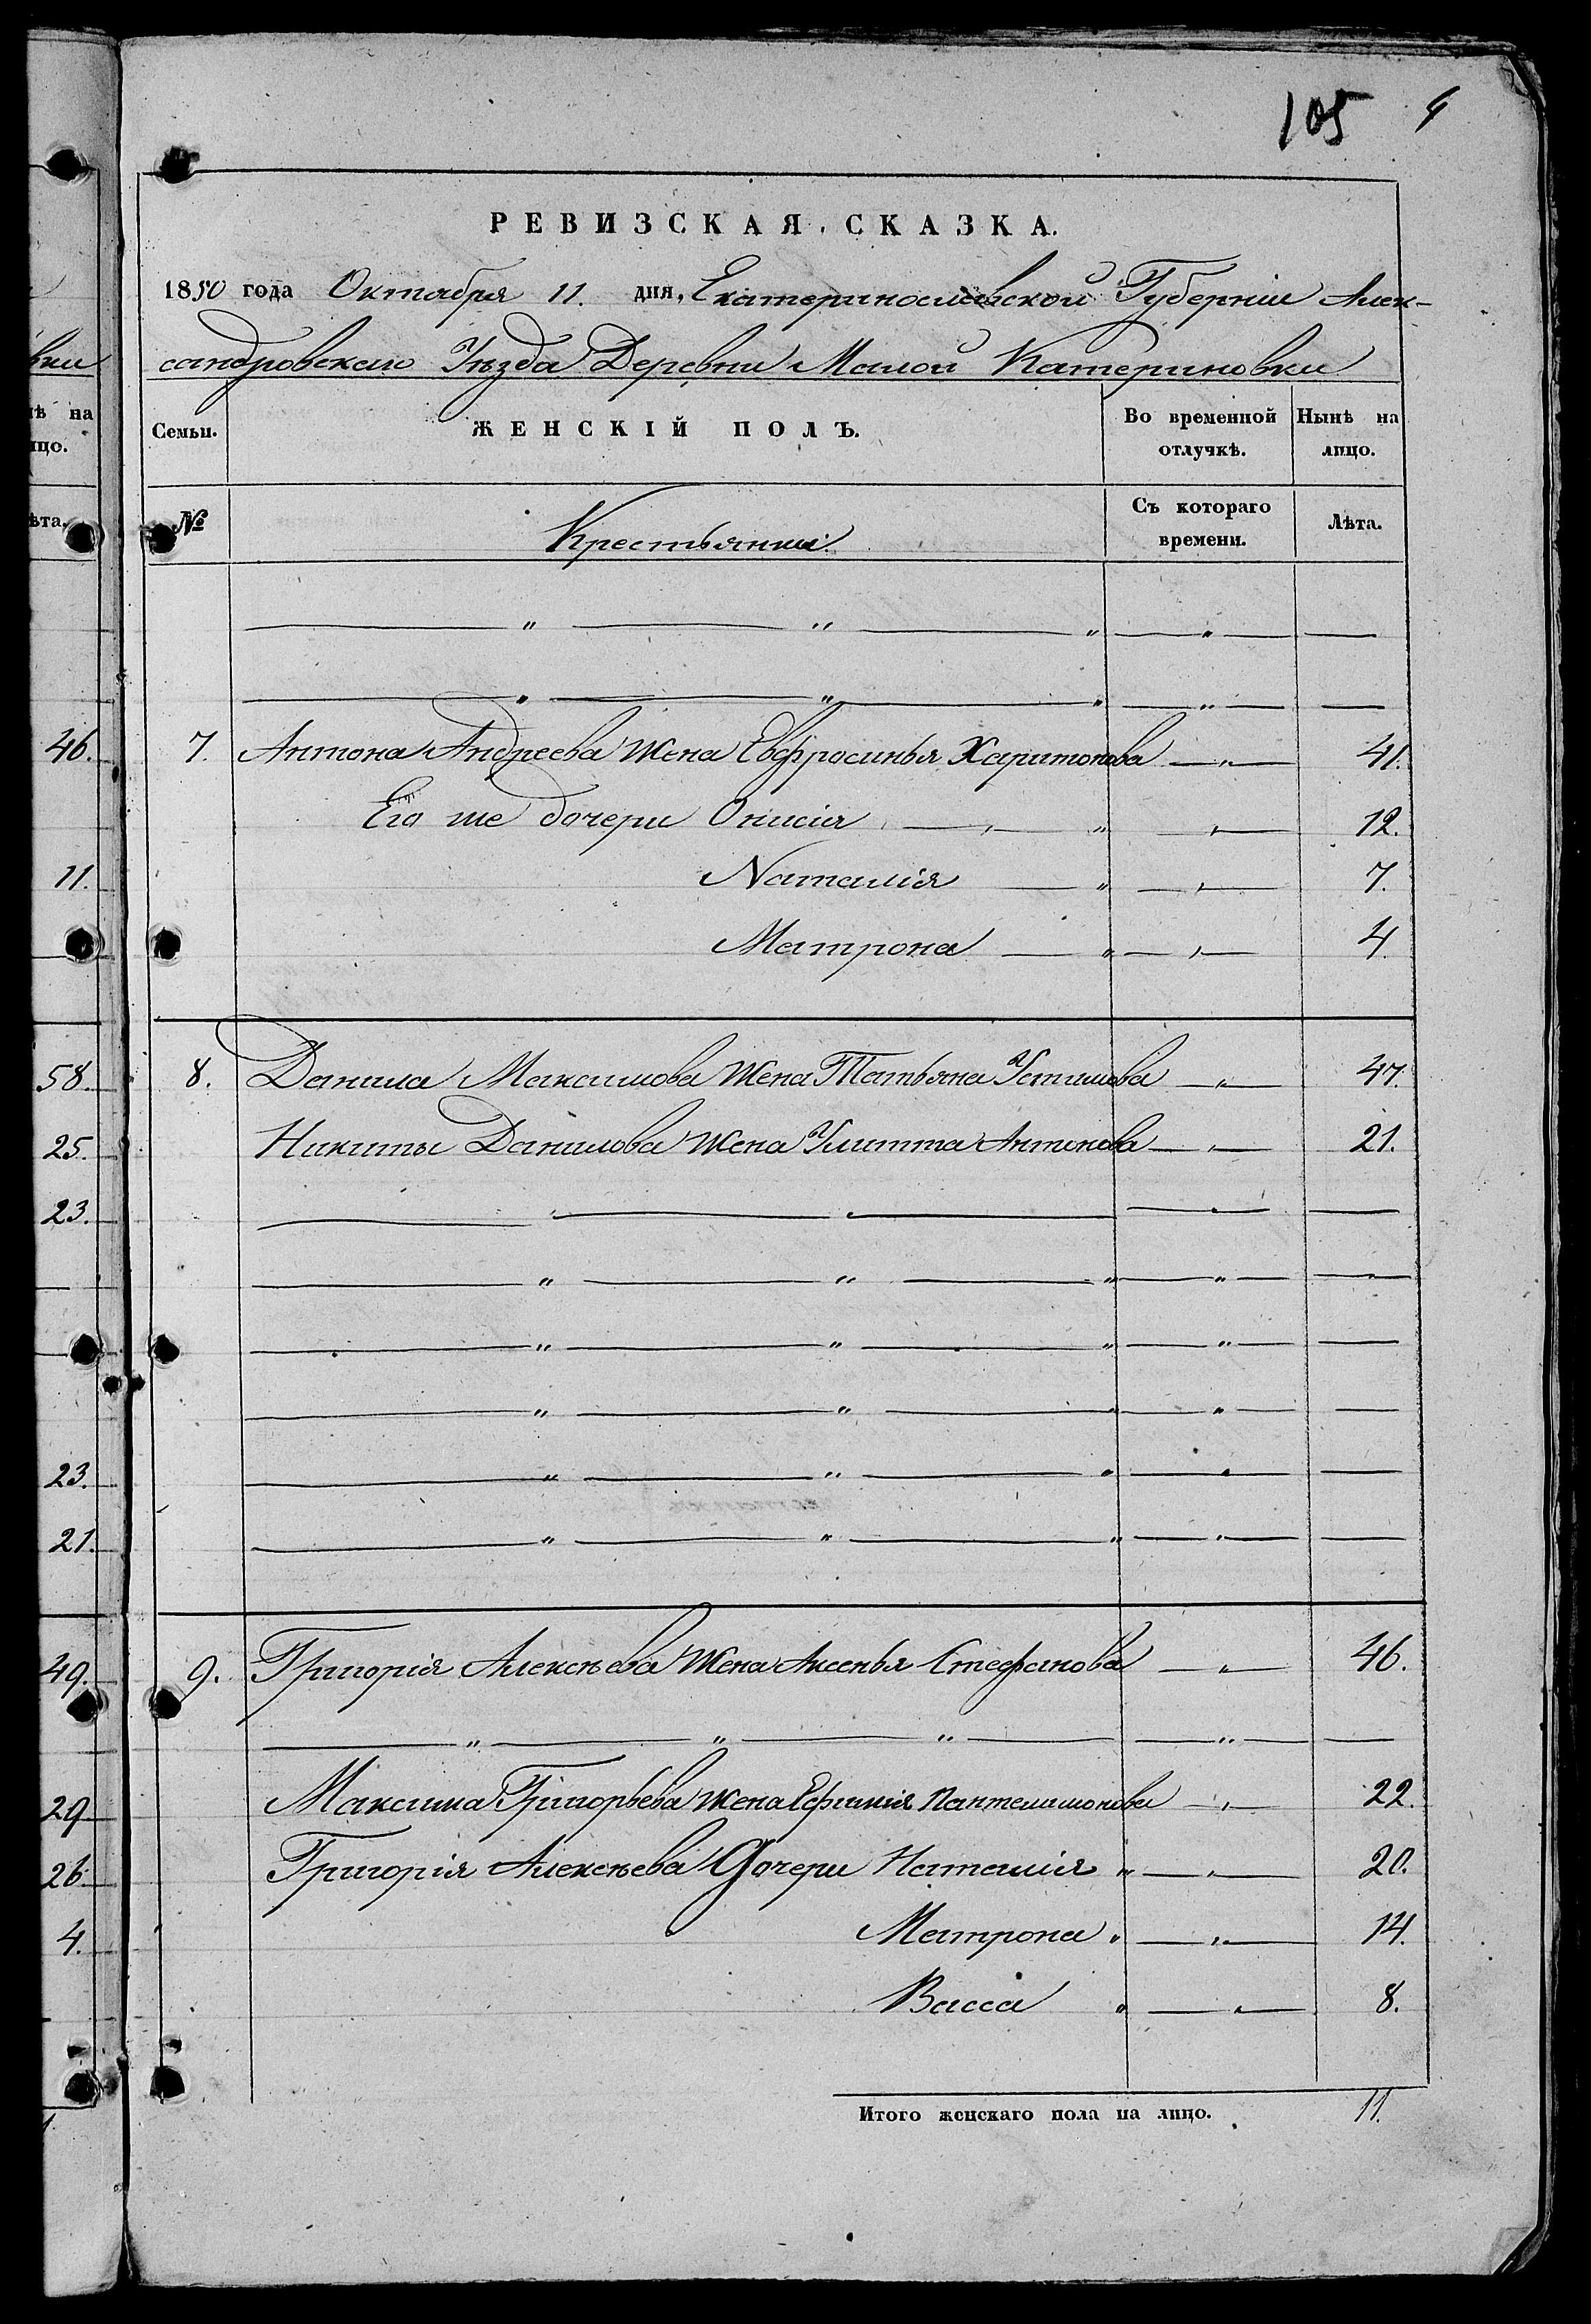 105 4
РЕВИЗСКАЯ СКАЗКА.
1850 года Октября 11. дня, Екатеринославской Губерніи Алек-
сандровскаго Уѣзда Деревни Малой Катериновки
вки
Семьи. ЖЕНСКІЙ ПОЛЪ. Во временной отлучкѣ. Нынѣ на лицо.
ѣ на
цо.
№ Крестьянки. Съ котораго времени. Лѣта.
ѣта.
46. 7. Антона Андреева жена Евфросинья Харитонова — „ — 41.
Его же дочери Онисія — „ — 12.
11. Наталія — „ — 7.
Матрона — „ — 4.
58. 8. Данила Максимова жена Татьяна Устимова — „ — 47.
25. Никиты Данилова жена Улитта Антонова — „ — 21.
23.
23.
21.
49. 9. Григорія Алексѣева жена Аксенья Стефанова — „ — 46.
29 Максима Григорьева жена Ефимія Пантелимонова — „ — 22.
26. Григорія Алексѣева Дочери Наталія „ — „ — 20.
4. Матрона „ — „ — 14.
Васса „ — „ — 8.
Итого женскаго пола на лицо. 11.